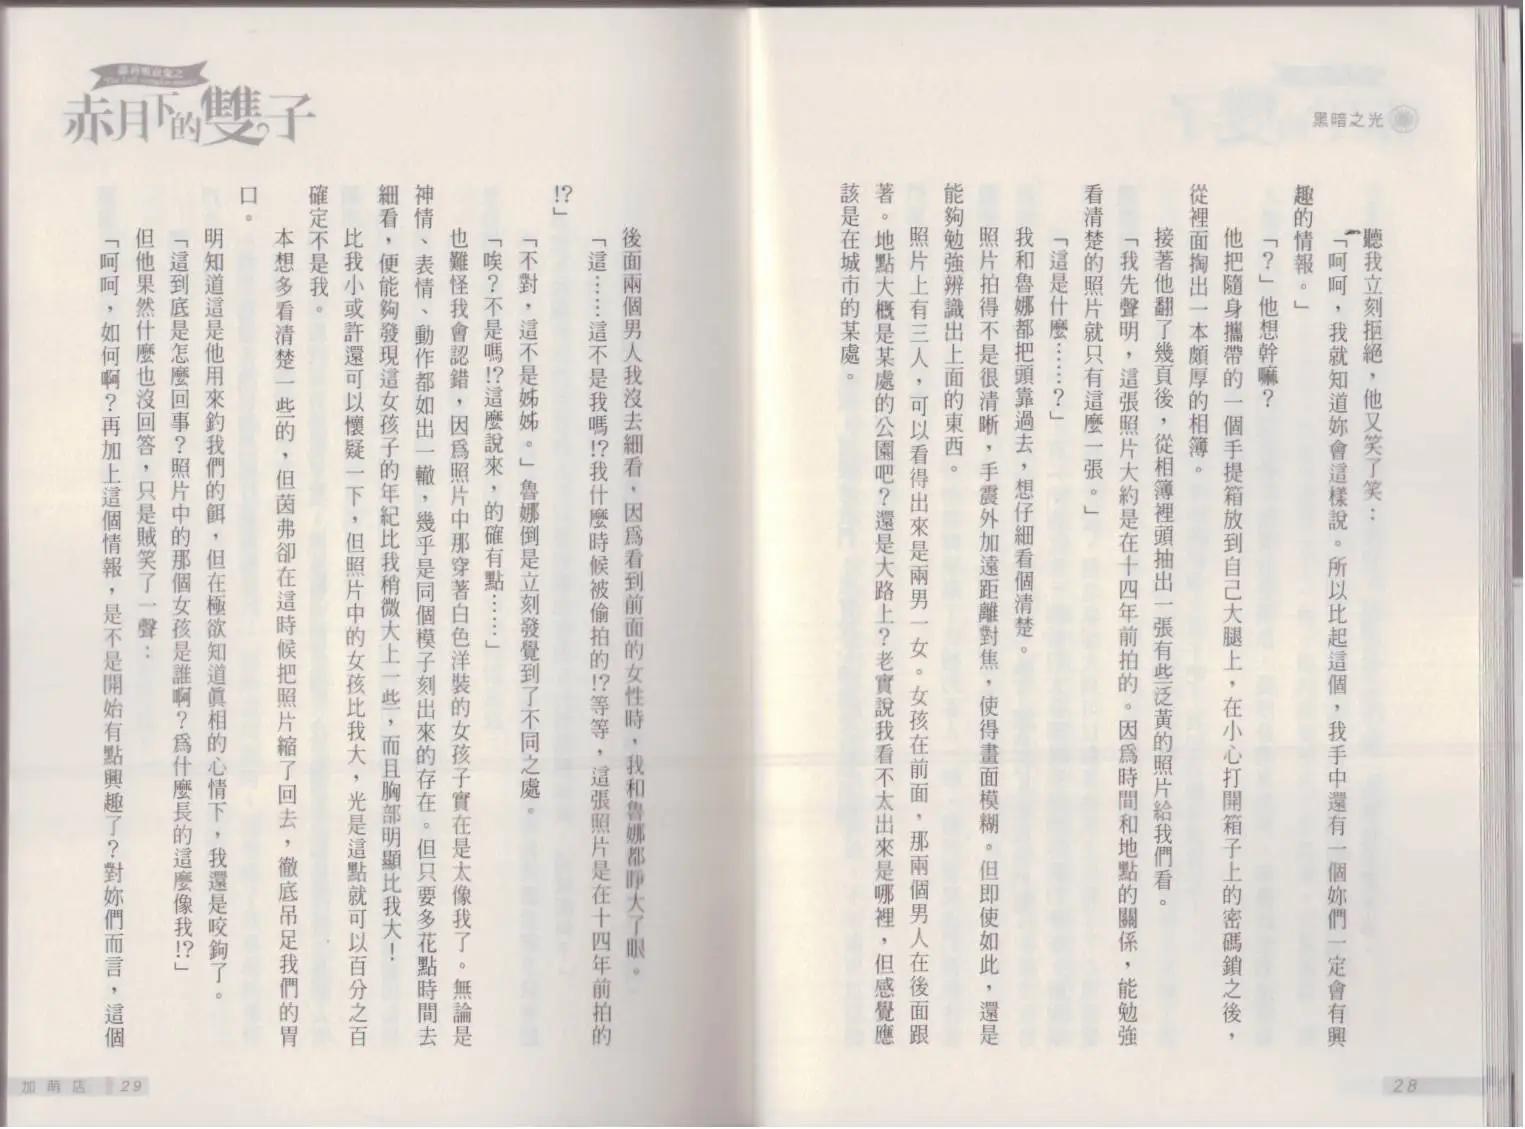 黑暗之光
聽我立刻拒絕，他又笑了笑：
「呵呵，我就知道妳會這樣說。所以比起這個，我手中還有一個妳們一定會有興
趣的情報。」
「？」他想幹嘛？
他把隨身攜帶的一個手提箱放到自己大腿上，在小心打開箱子上的密碼鎖之後，
從裡面掏出一本頗厚的相簿。
接著他翻了幾頁後，從相簿裡頭抽出一張有些泛黃的照片給我們看。
「我先聲明，這張照片大約是在十四年前拍的。因為時間和地點的關係，能勉強
看清楚的照片就只有這麼一張。」
「這是什麼……？」
我和魯娜都把頭靠過去，想仔細看個清楚。
照片拍得不是很清晰，手震外加遠距離對焦，使得畫面模糊。但即使如此，還是
能夠勉強辨識出上面的東西。
照片上有三人，可以看得出來是兩男一女。女孩在前面，那兩個男人在後面跟
著。地點大概是某處的公園吧？還是大路上？老實說我看不太出來是哪裡，但感覺應
該是在城市的某處。
28
赤月下的雙子
後面兩個男人我沒去細看，因為看到前面的女性時，我和魯娜都睜大了眼。
「這……這不是我嗎!?我什麼時候被偷拍的!?等等，這張照片是在十四年前拍的
!?」
「不對，這不是姊姊。」魯娜倒是立刻發覺到了不同之處。
「唉？不是嗎!?這麼說來，的確有點……」
也難怪我會認錯，因為照片中那穿著白色洋裝的女孩子實在是太像我了。無論是
神情、表情、動作都如出一轍，幾乎是同個模子刻出來的存在。但只要多花點時間去
細看，便能夠發現這女孩子的年紀比我稍微大上一些，而且胸部明顯比我大！
比我小或許還可以懷疑一下，但照片中的女孩比我大，光是這點就可以百分之百
確定不是我。
本想多看清楚一些的，但茵弗卻在這時候把照片縮了回去，徹底吊足我們的胃
口。
明知道這是他用來釣我們的餌，但在極欲知道真相的心情下，我還是咬鉤了。
「這到底是怎麼回事？照片中的那個女孩是誰啊？為什麼長的這麼像我!?」
但他果然什麼也沒回答，只是賊笑了一聲：
「呵呵，如何啊？再加上這個情報，是不是開始有點興趣了？對妳們而言，這個
加萌店 29